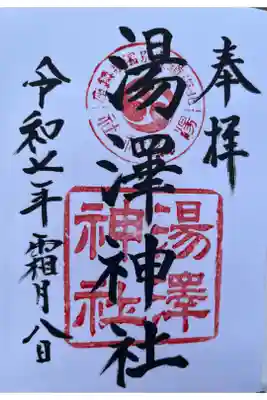 奉拝
湯澤神社
湯澤
神社
令和七年霜月八日